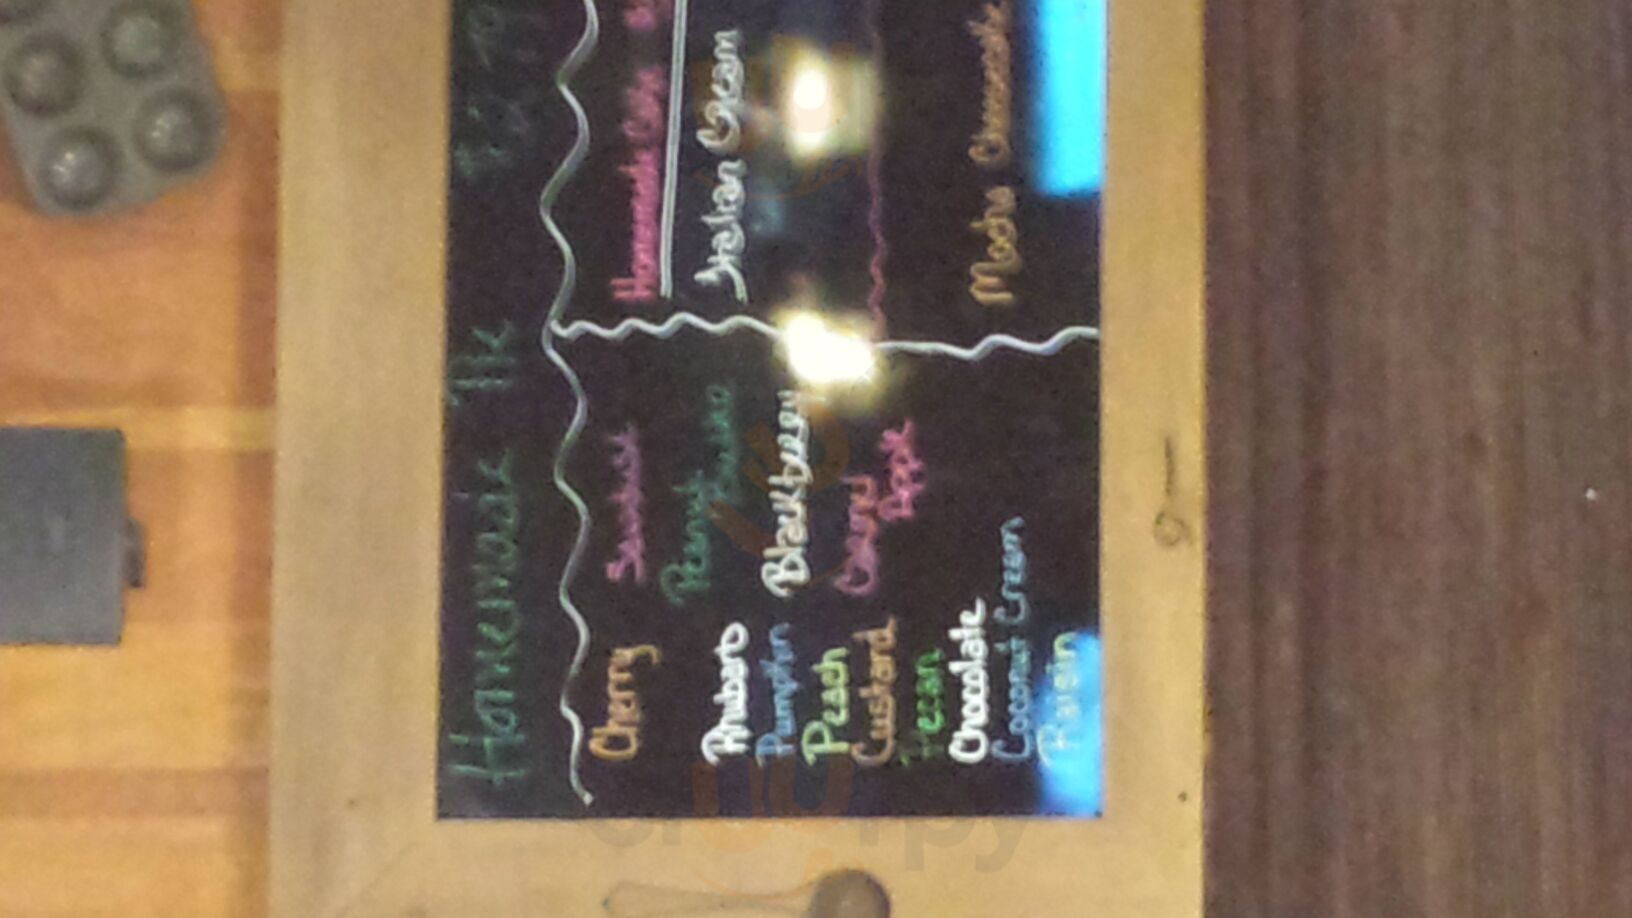 Homemade Pie
Cherry
Rhubarb
Pumpkin
Peach
Custard
Pecan
Chocolate
Coconut Cream
Raisin
Peanut
Blackberry
Caramel
Apple
Homemade Cake
Italian Cream
Mocha Cheesecake